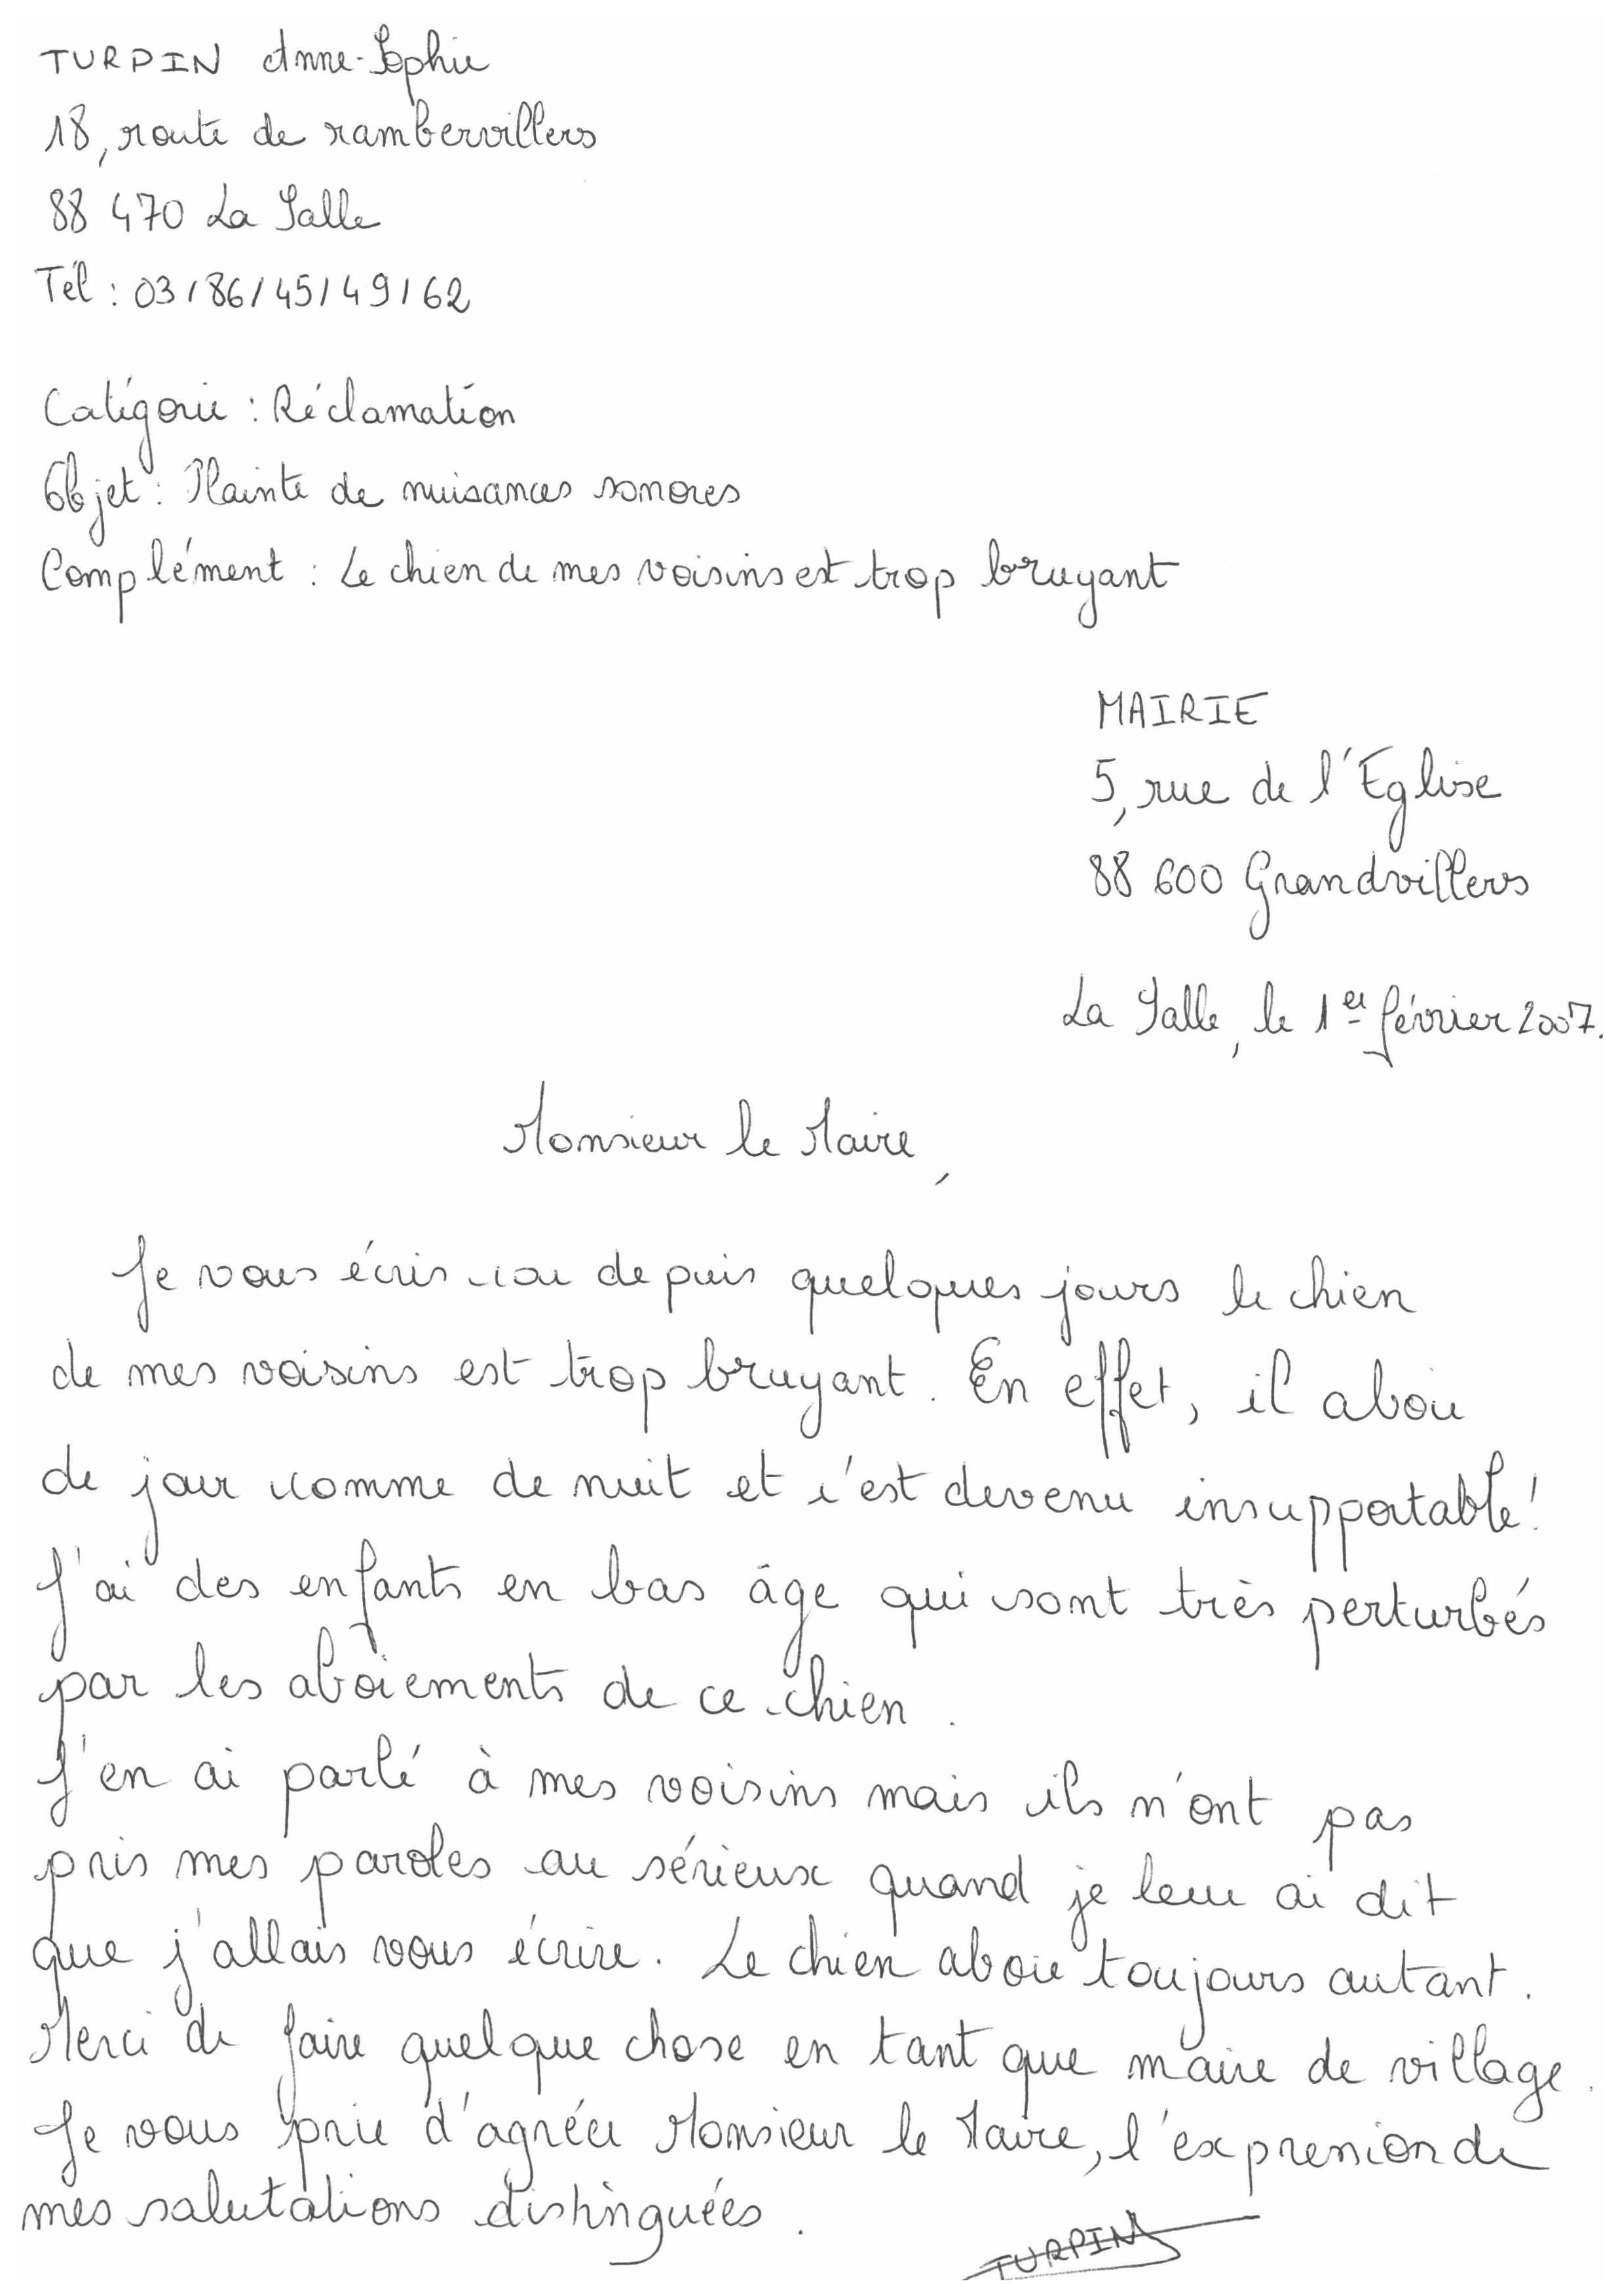 TURPIN Anne-Sophie
18, route de rambervillers
88 470 La Salle
Tél : 03/86/45/49/62
Catégorie : Réclamation
Objet : Plainte de nuisances sonores
Complément : Le chien de mes voisins est trop bruyant
MAIRIE
5, rue de l'Eglise
88 600 Grandvillers
La Salle, le 1er février 2007.
Monsieur le Maire,
Je vous écris car depuis quelques jours le chien
de mes voisins est trop bruyant. En effet, il aboie
de jour comme de nuit et c'est devenu insupportable!
J'ai des enfants en bas âge qui sont très perturbés
par les aboiements de ce chien.
J'en ai parlé à mes voisins mais ils n'ont pas
pris mes paroles au sérieux quand je leur ai dit
que j'allais vous écrire. Le chien aboie toujours autant.
Merci de faire quelque chose en tant que maire de village.
Je vous prie d'agréer Monsieur le Maire, l'expression de
mes salutations distinguées.
TURPIN